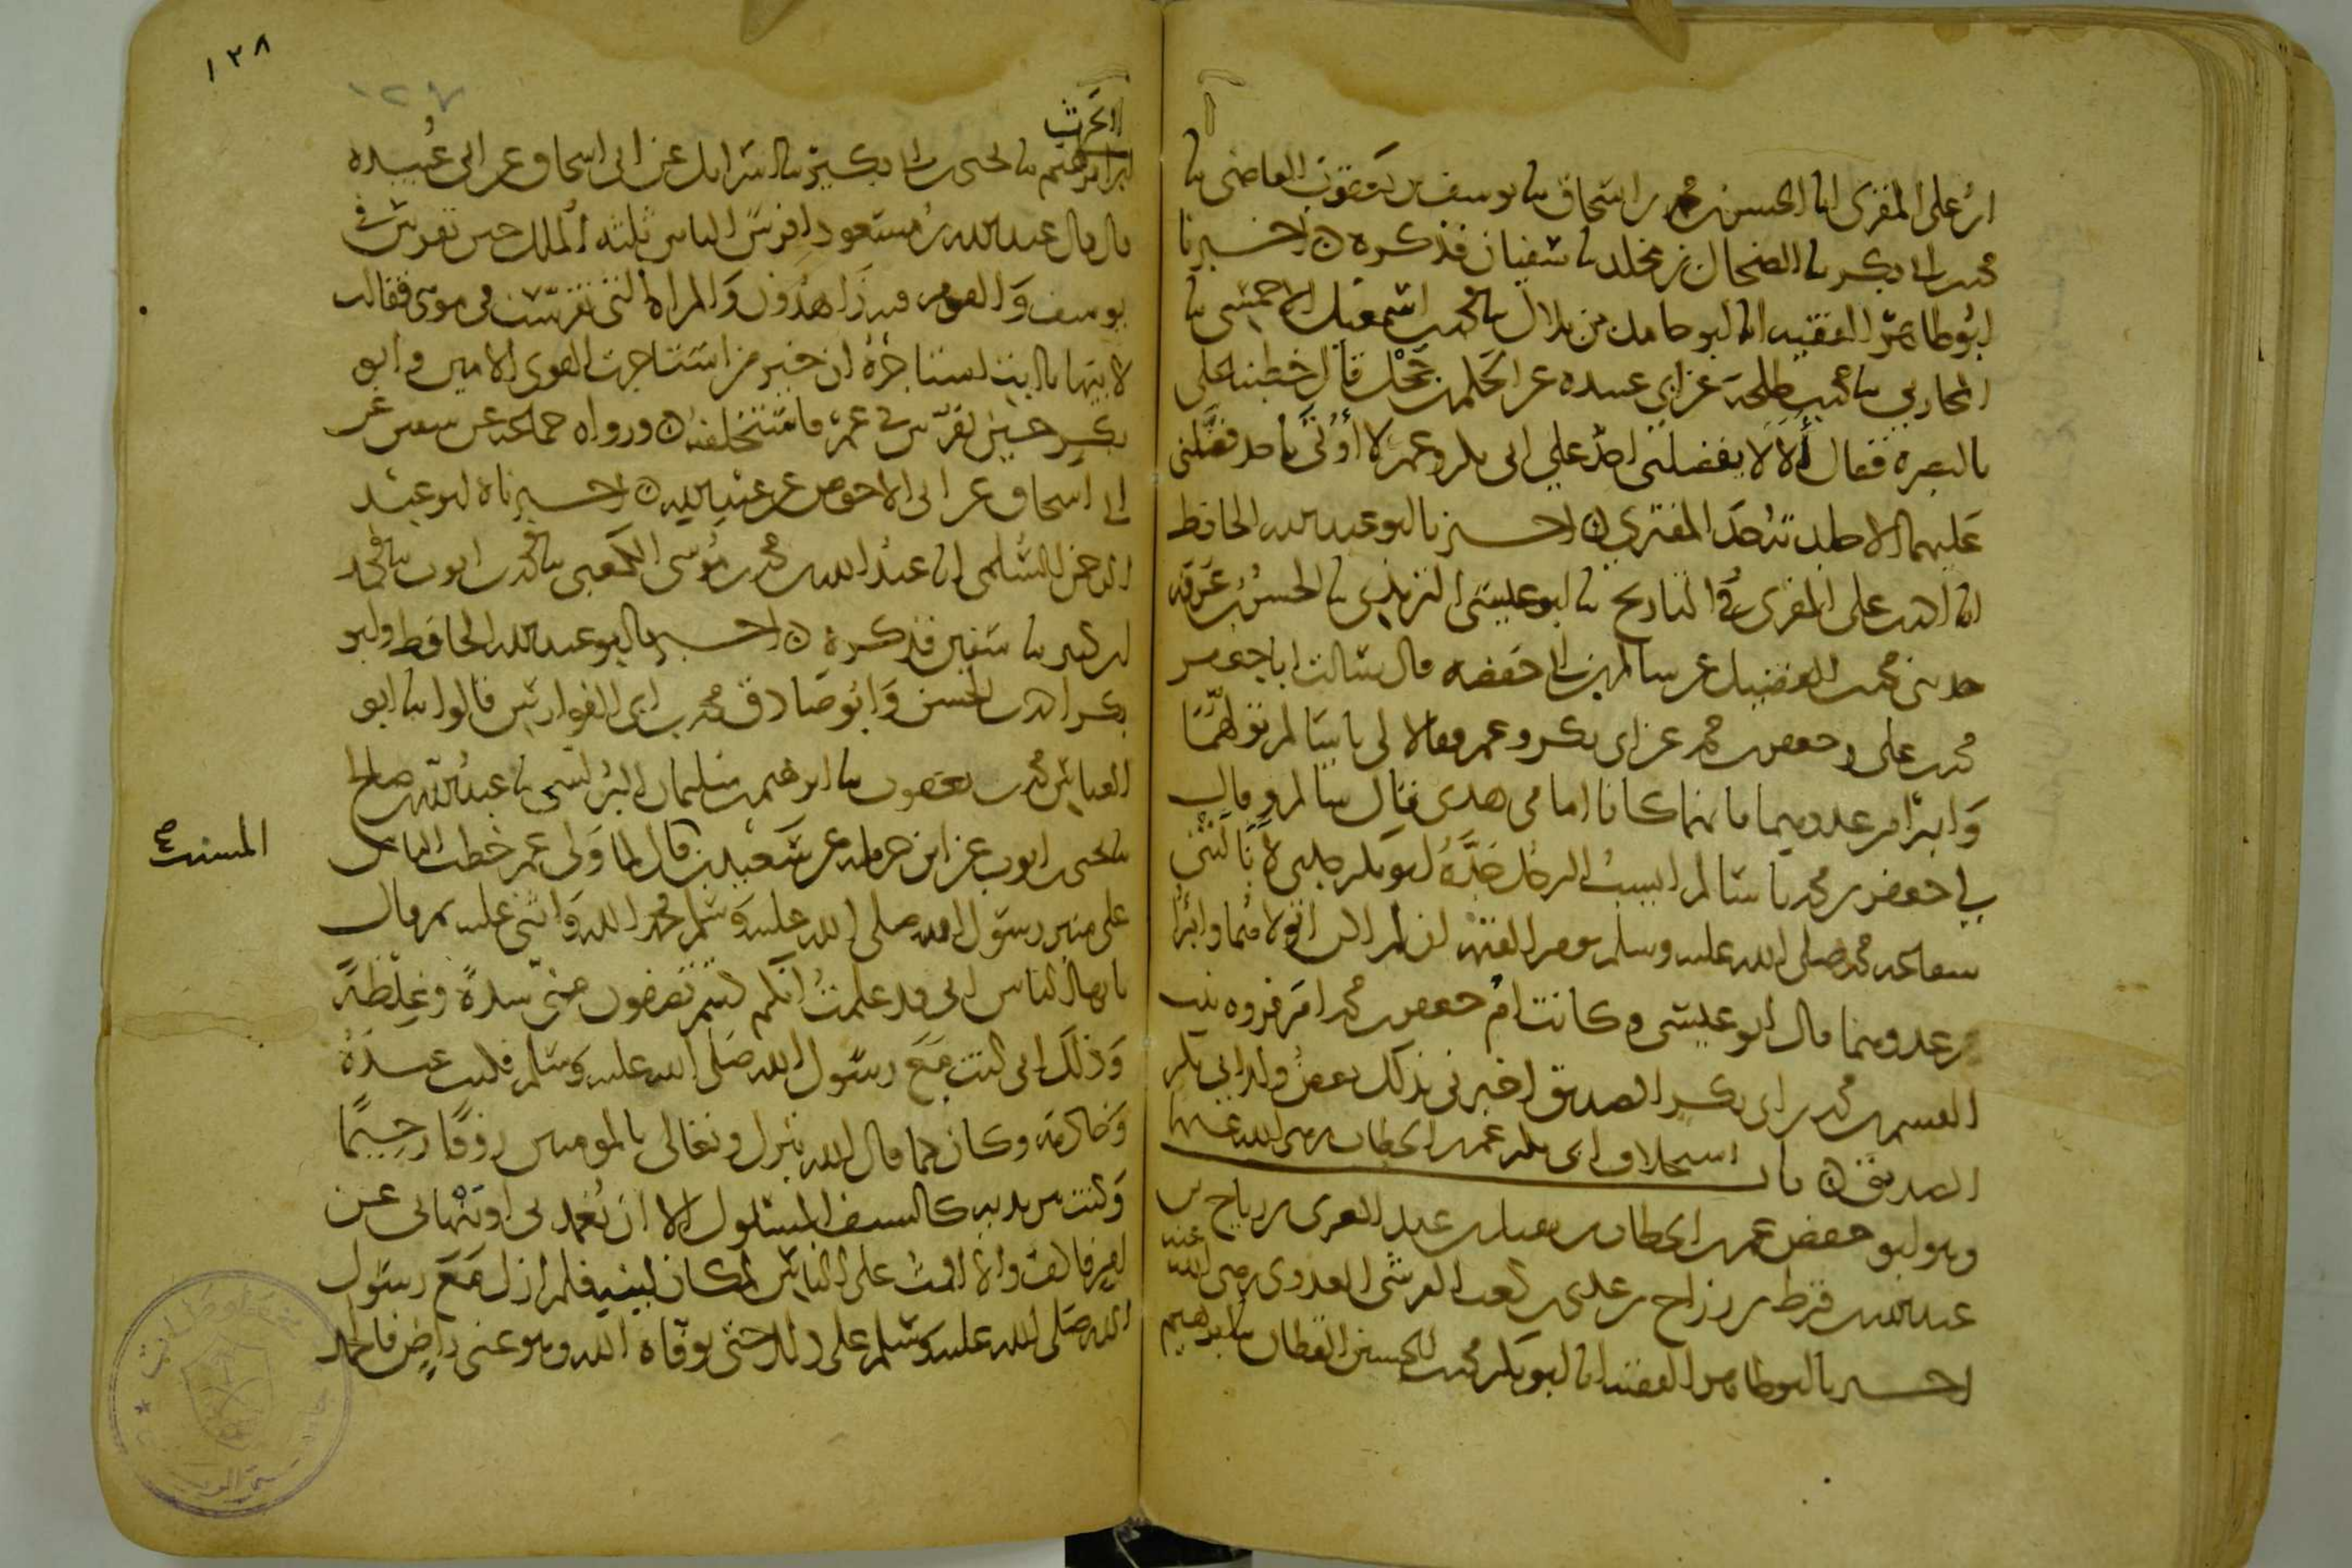 ابن علي المقرئ انا الحسن بن محمد بن اسحاق نا يوسف بن يعقوب القاضي نا
محمد بن ابي بكر نا الضحاك بن مخلد نا سفيان فذكره ه اخبرنا
ابو طاهر الفقيه انا ابو حامد بن بلال نا محمد بن اسمعيل الاحمسي نا
المحاربي نا محمد بن طلحة عن ابي عبيده عن الحكم بن جحل قال خطبنا علي
بالبصرة فقال ألا لا يفضلني احد على ابي بكر وعمر لا أوتى باحد فضلني
عليهما الا جلدته حد المفتري ه اخبرنا ابو عبد الله الحافظ
انا احمد بن علي المقرئ في التاريخ نا ابو عيسى الترمذي نا الحسن بن عرفه
حدثني محمد بن الفضيل عن سالم بن ابي حفصه قال سالت ابا جعفر
محمد بن علي وجعفر بن محمد عن ابي بكر وعمر فقالا لي يا سالم تولهما
وابرا من عدوهما فانهما كانا امامي هدى قال سالم وقال
لي جعفر بن محمد يا سالم ايسب الرجل جده ابو بكر جدي لا نالتني
شفاعه محمد صلى الله عليه وسلم يوم القيمه ان لم اكن اتولاهما وابرا
من عدوهما قال ابو عيسى وكانت ام جعفر بن محمد ام فروه بنت
القسم بن محمد بن ابي بكر الصديق اخبرني بذلك بعض ولد ابي بكر
الصديق ه باب استخلاف ابي بكر عمر بن الخطاب رضي الله عنهما
وهو ابو حفص عمر بن الخطاب بن نفيل بن عبد العزى بن رياح بن
عبد الله بن قرط بن رزاح بن عدي بن كعب القرشي العدوي رضي الله عنه
اخبرنا ابو طاهر الفقيه انا ابو بكر محمد بن الحسين القطان نا ابرهيم
١٢٨
١٢٧
الحرث
ابراهيم نا يحيى بن ابي بكير نا اسرائيل عن ابي اسحاق عن ابي عبيده
قال قال عبد الله بن مسعود افرس الناس ثلثه الملك حين تفرس في
يوسف والقوم فيه زاهدون والمراه التي تفرست في موسى فقالت
لابيها يا ابت استاجره ان خير من استاجرت القوي الامين وابو
بكر حين تفرس في عمر فاستخلفه ه ورواه جماعه عن سفين عن
ابي اسحاق عن ابي الاحوص عن عبد الله ه اخبرناه ابو عبد
الرحمن السلمي انا عبد الله بن محمد بن موسى الكعبي نا محمد بن ايوب نا محمد
ابن كثير نا سفين فذكره ه اخبرنا ابو عبد الله الحافظ وابو
بكر احمد بن الحسن وابو صادق محمد بن ابي الفوارس قالوا نا ابو
العباس محمد بن يعقوب نا ابرهيم بن سليمان البرلسي نا عبد الله بن صالح
نا يحيى بن ايوب عن ابن حرمله عن سعيد بن قال لما ولي عمر خطب الناس
المسيب صح
على منبر رسول الله صلى الله عليه وسلم فحمد الله واثنى عليه ثم قال
يا ايها الناس اني قد علمت انكم كنتم تونسون مني شدة وغلظة
وذلك اني كنت مع رسول الله صلى الله عليه وسلم فكنت عبده
وخادمه وكان كما قال الله تبرك وتعالى بالمومنين رؤفا رحيما
وكنت بين يديه كالسيف المسلول الا ان يغمدني او ينهاني عن
امر فاكف والا اقدمت على الناس لمكان لينه فلم ازل مع رسول
الله صلى الله عليه وسلم على ذلك حتى توفاه الله وهو عني راض فالحمد